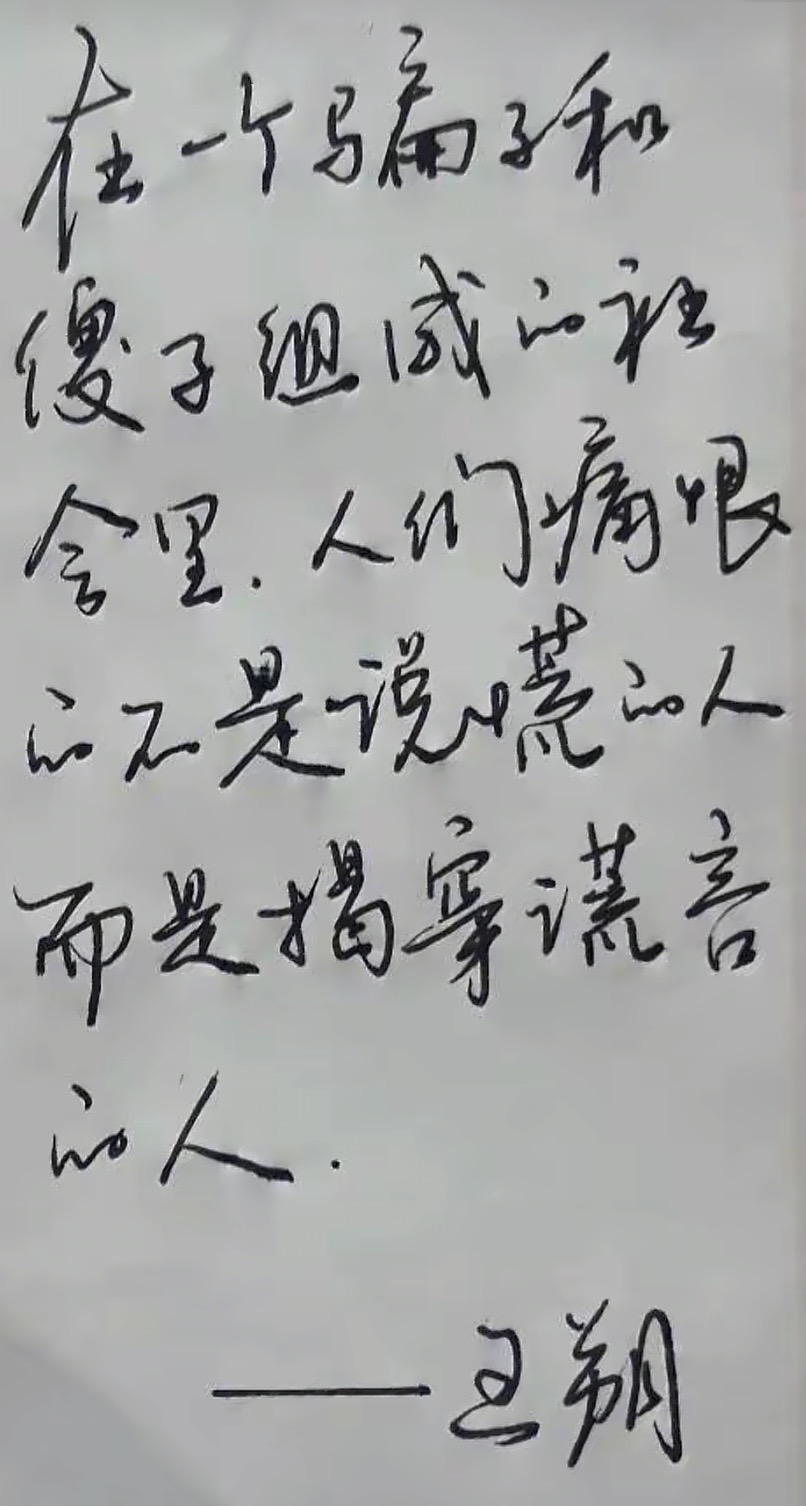 在一个骗子和
傻子组成的社
会里.人们痛恨
的不是说慌的人
而是揭穿谎言
的人.
——王朔